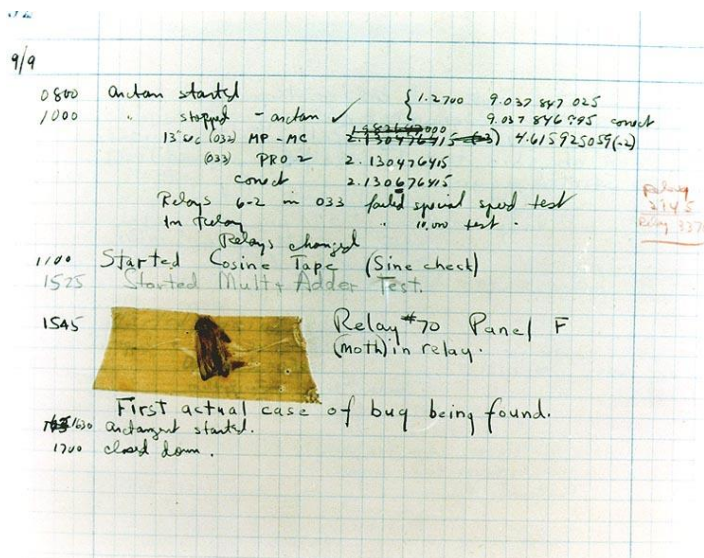 9/9
0800 arctan started { 1.2700 9.037 847 025
1000 " stopped - arctan ✓ 9.037 846 995 correct
13"sec (032) MP - MC 2.130476415 (-3) 4.615925059(-2)
(033) PRO 2 2.130476415
correct 2.130676415
Relays 6-2 in 033 failed special speed test
In Relay " 10,000 test .
Relay
2145
Relay 3370
Relays changed
1100 Started Cosine Tape (Sine check)
1525 Started Mult + Adder Test.
1545 Relay #70 Panel F
(moth) in relay.
First actual case of bug being found.
1630 arctangent started.
1700 closed down.